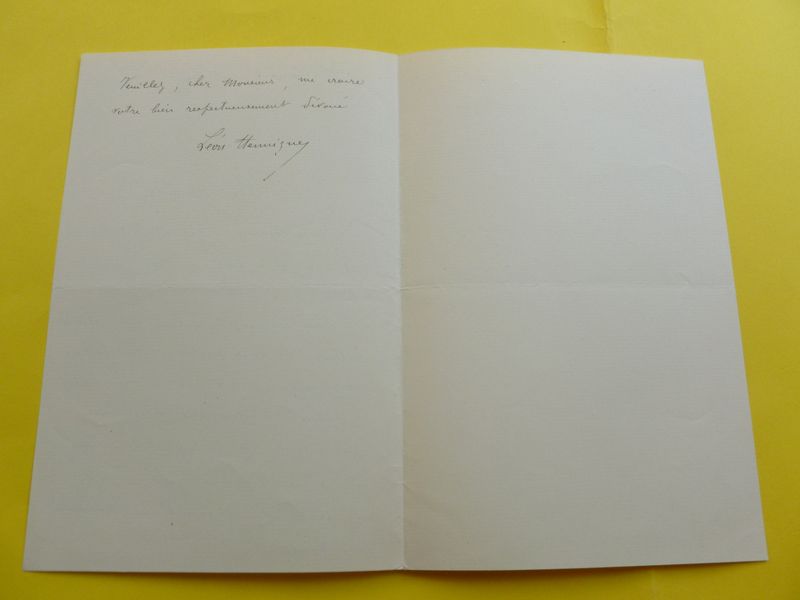 Veuillez, cher Monsieur, me croire
votre bien respectueusement dévoué
Léon Hennique